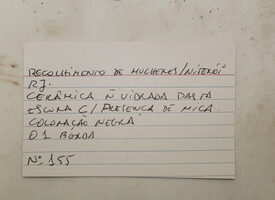 RECOLHIMENTO DE MULHERES/NITERÓI
RJ.
CERÂMICA Ñ VIDRADA PASTA
ESCURA C/ PRESENÇA DE MICA
COLORAÇÃO NEGRA
01 BORDA
Nº 155